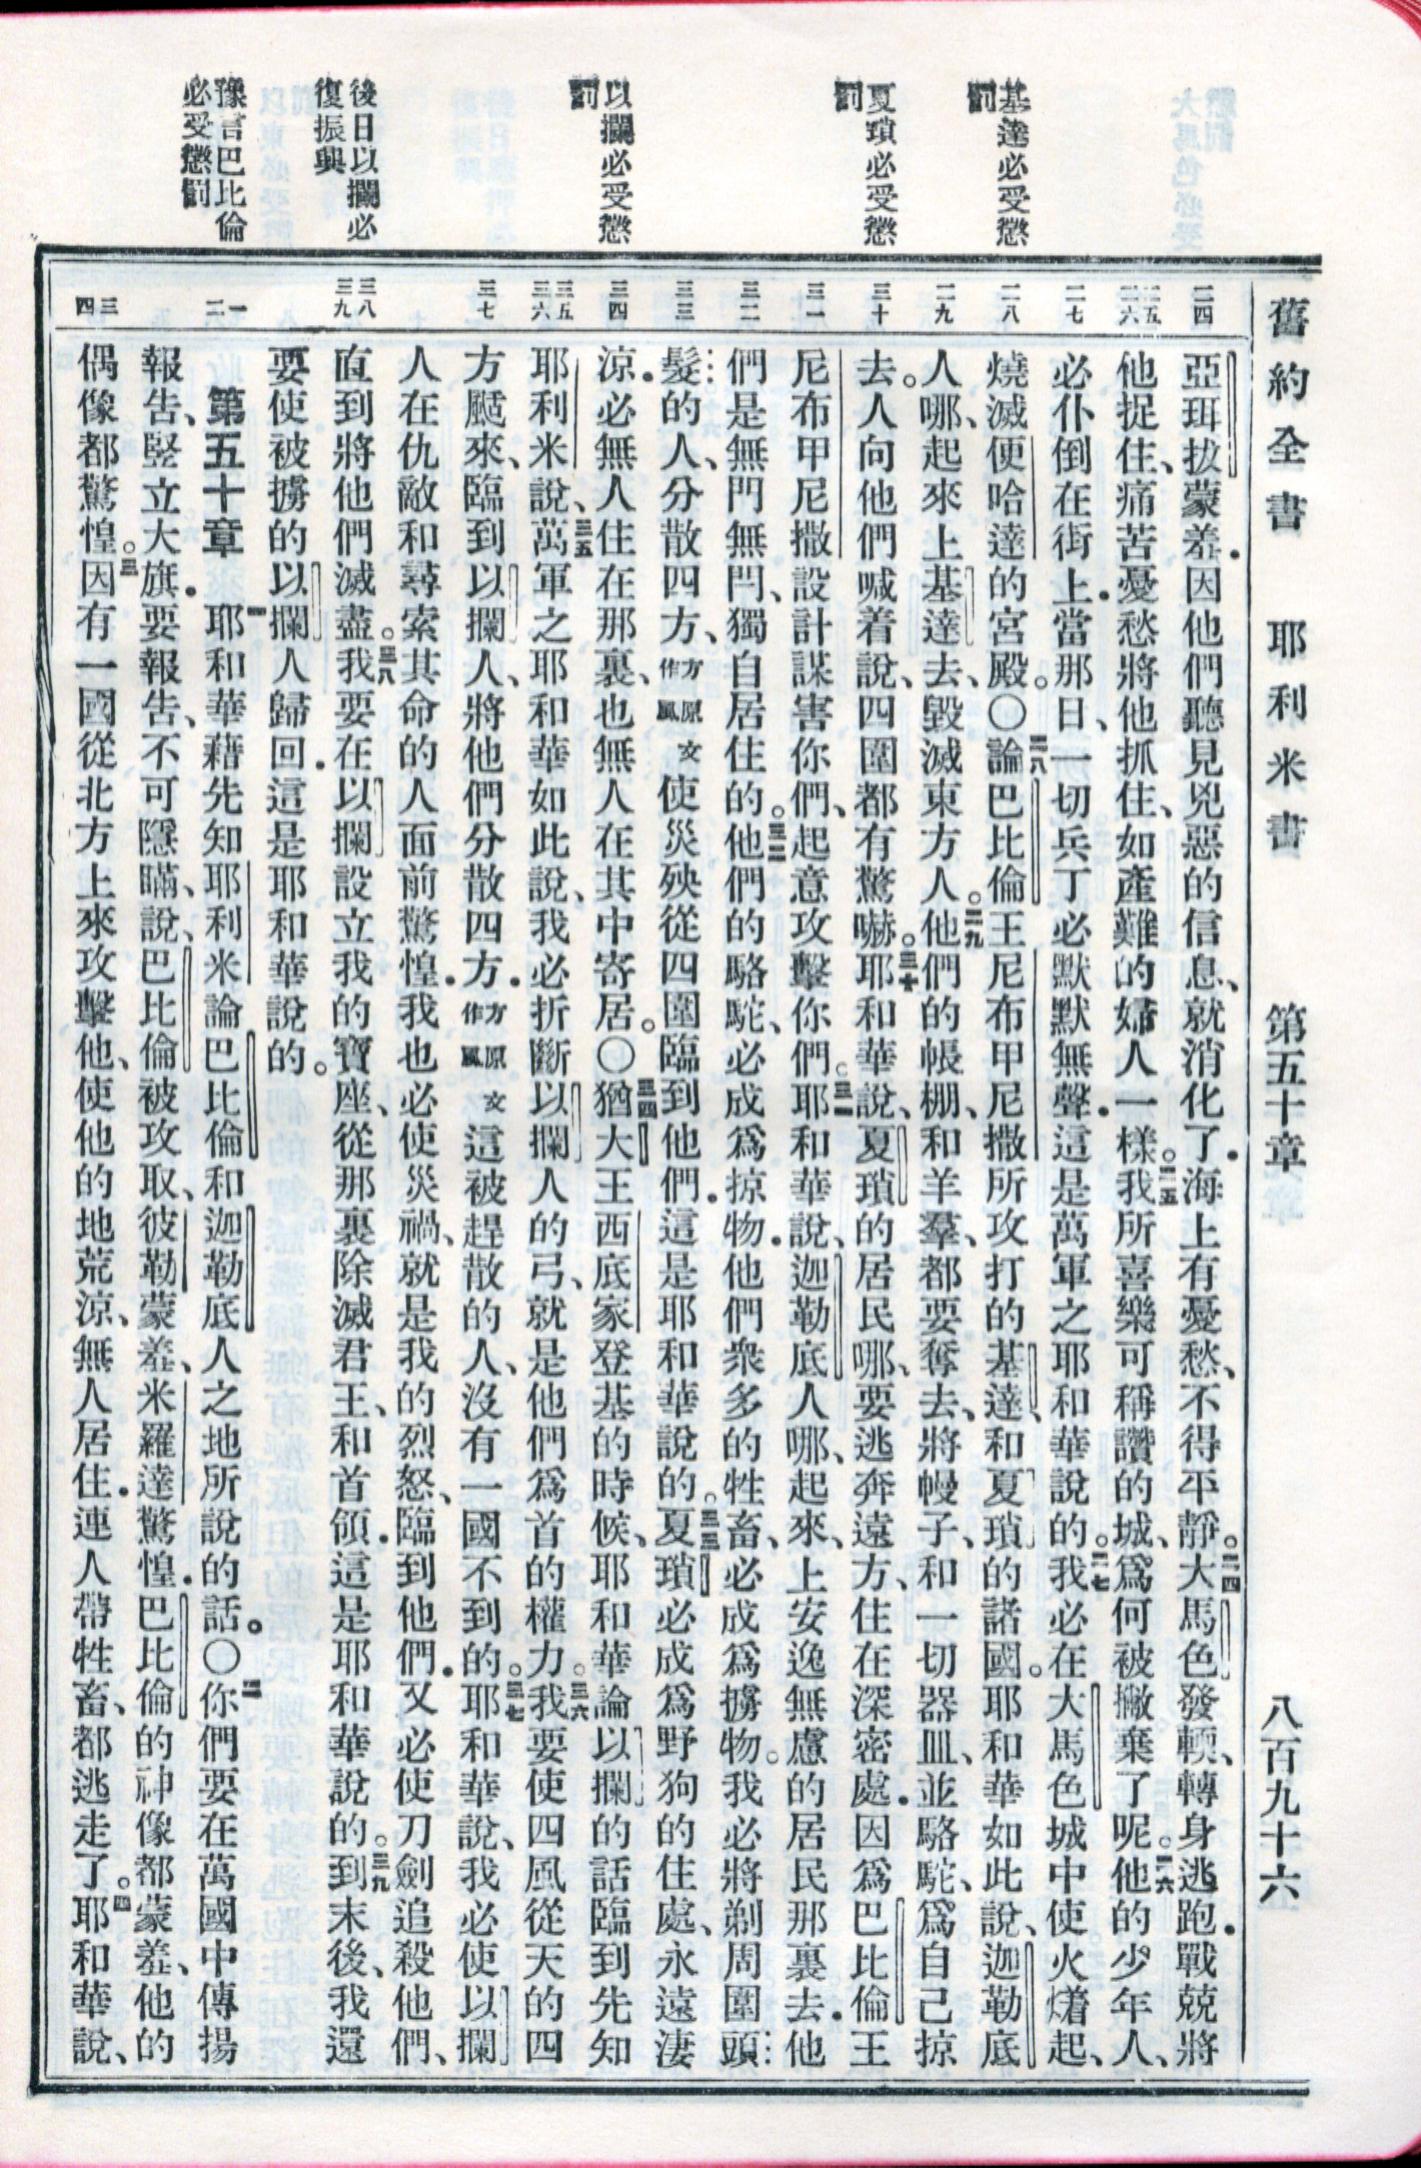 舊約全書 耶利米書 第五十章 八百九十六
基達必受懲
罰
夏瑣必受懲
罰
以攔必受懲
罰
後日以攔必
復振興
豫言巴比倫
必受懲罰
二四
二五
二六
二七
二八
二九
三十
三一
三二
三三
三四
三五
三六
三七
三八
三九
一
二
三
四
亞珥拔蒙羞．因他們聽見兇惡的信息、就消化了．海上有憂愁、不得平靜。二四大馬色發輭、轉身逃跑．戰兢將
他捉住、痛苦憂愁將他抓住、如產難的婦人一樣。二五我所喜樂可稱讚的城、爲何被撇棄了呢。二六他的少年人、
必仆倒在街上．當那日、一切兵丁必默默無聲．這是萬軍之耶和華說的。二七我必在大馬色城中使火燵起、
燒滅便哈達的宮殿。〇二八論巴比倫王尼布甲尼撒所攻打的基達、和夏瑣的諸國。耶和華如此說、迦勒底
人哪、起來上基達去、毀滅東方人。二九他們的帳棚、和羊羣、都要奪去、將幔子、和一切器皿、並駱駝、爲自己掠
去。人向他們喊着說、四圍都有驚嚇。三十耶和華說、夏瑣的居民哪、要逃奔遠方、住在深密處．因爲巴比倫王
尼布甲尼撒設計謀害你們、起意攻擊你們。三一耶和華說、迦勒底人哪、起來、上安逸無慮的居民那裏去．他
們是無門無閂、獨自居住的。三二他們的駱駝、必成爲掠物．他們衆多的牲畜、必成爲擄物。我必將剃周圍頭
髮的人、分散四方、方原文作風使災殃從四圍臨到他們．這是耶和華說的。三三夏瑣必成爲野狗的住處、永遠淒
涼．必無人住在那裏、也無人在其中寄居。〇三四猶大王西底家登基的時候、耶和華論以攔的話臨到先知
耶利米說、三五萬軍之耶和華如此說、我必折斷以攔人的弓、就是他們爲首的權力。三六我要使四風從天的四
方颳來、臨到以攔人、將他們分散四方．方原文作風這被趕散的人、沒有一國不到的。三七耶和華說、我必使以攔
人在仇敵和尋索其命的人面前驚惶．我也必使災禍、就是我的烈怒、臨到他們．又必使刀劍追殺他們、
直到將他們滅盡。三八我要在以攔設立我的寶座、從那裏除滅君王、和首領．這是耶和華說的。三九到末後、我還
要使被擄的以攔人歸回．這是耶和華說的。
第五十章 一耶和華藉先知耶利米論巴比倫和迦勒底人之地所說的話。〇二你們要在萬國中傳揚
報告、豎立大旗．要報告、不可隱瞞、說、巴比倫被攻取、彼勒蒙羞、米羅達驚惶．巴比倫的神像都蒙羞、他的
偶像都驚惶。三因有一國從北方上來攻擊他、使他的地荒涼、無人居住．連人帶牲畜、都逃走了。四耶和華說、